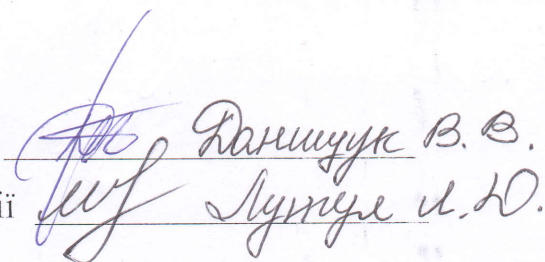 Данищук В. В.
ії Лутчул Л. Ю.